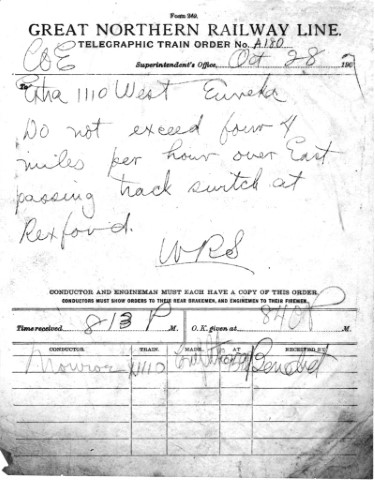 Form 249.
GREAT NORTHERN RAILWAY LINE.
TELEGRAPHIC TRAIN ORDER No. A180
C&E Superintendent's Office, Oct 28 190
To Extra 1110 West Eureka
Do not exceed four 4
miles per hour over East
passing track switch at
Rexford.
WRS
CONDUCTOR AND ENGINEMAN MUST EACH HAVE A COPY OF THIS ORDER.
CONDUCTORS MUST SHOW ORDERS TO THEIR REAR BRAKEMEN, AND ENGINEMEN TO THEIR FIREMEN.
Time received 813 P M. O. K. given at 840 P M.
CONDUCTOR. TRAIN. MADE. AT RECEIVED BY
Monroe 1110 Benedict